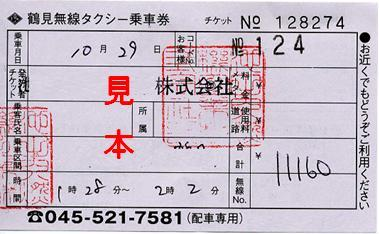 鶴見無線タクシー乗車券 チケット No 128274
乗車月日 10月29日 お客様コードNo. No 124
チケット発行社 株式会社 メーター料金 ¥
乗客氏名 所属 道路使用料 ¥
乗車区間 合計 ¥ 11160
時間 1時28分~2時2分 無線No.
☎045-521-7581(配車専用)
●お近くでもどうぞご利用ください
見本